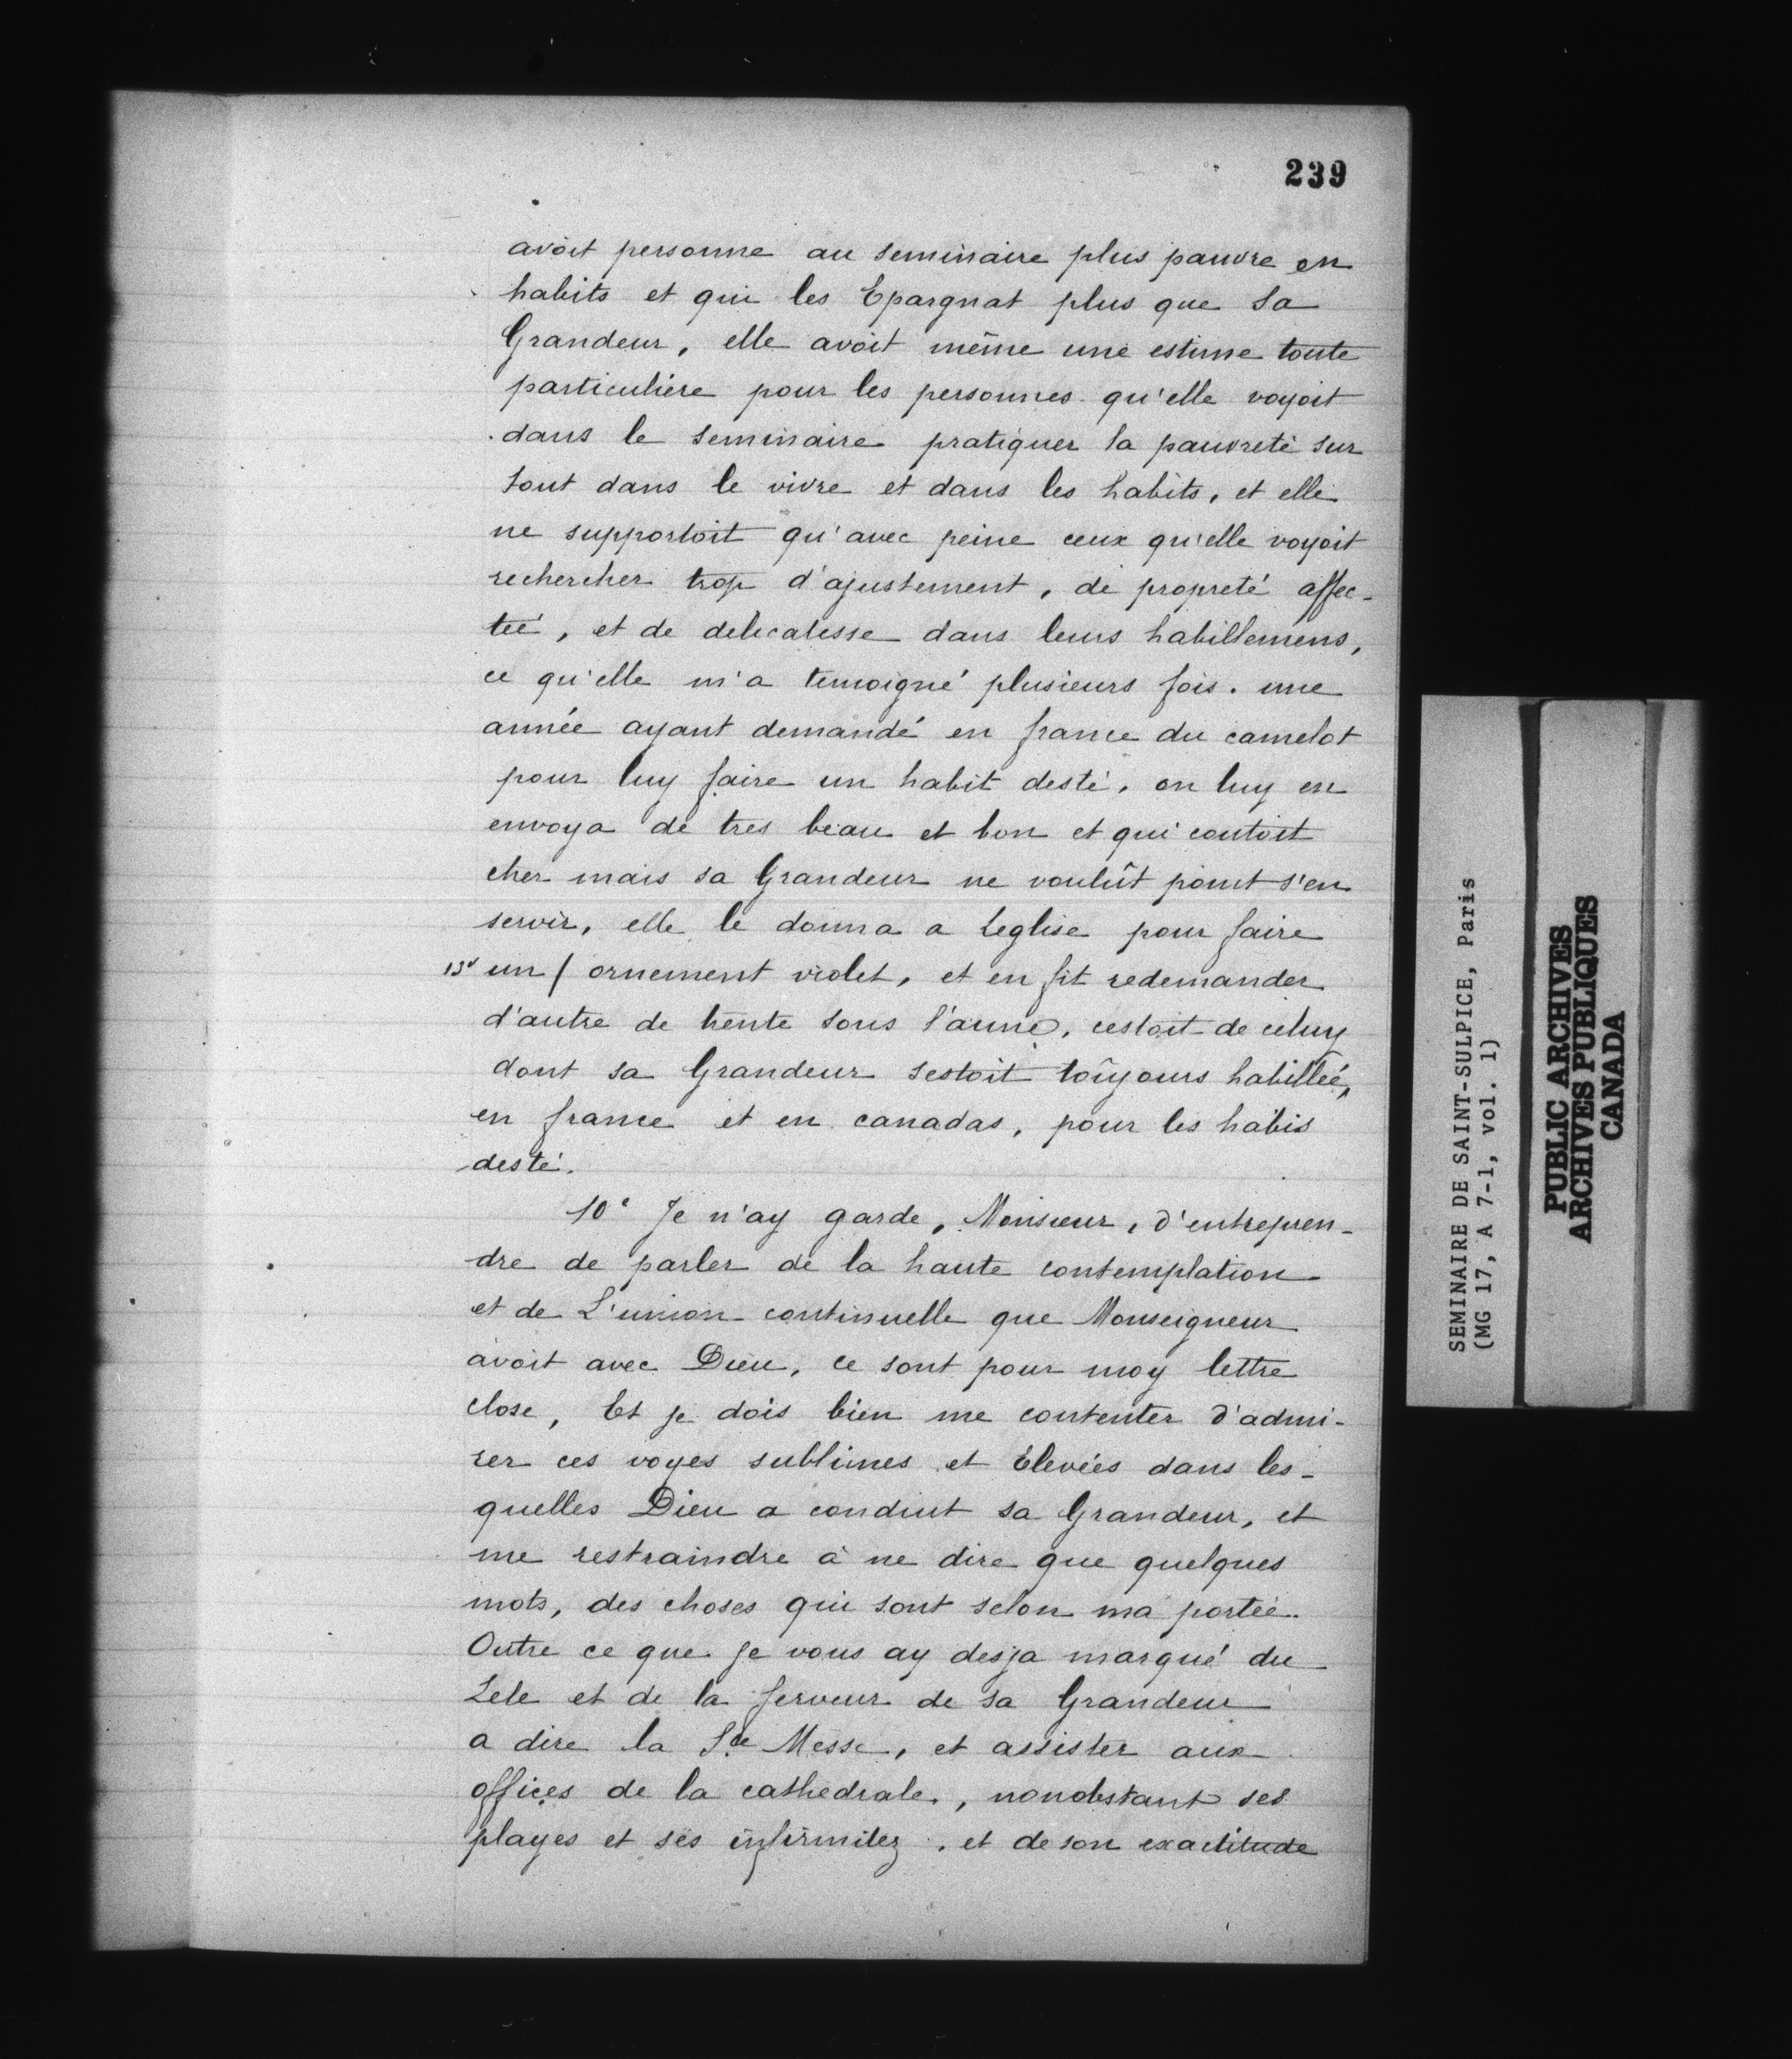 239
avoit personne au seminaire plus pauvre en
habits et qui les Epargnat plus que Sa
Grandeur, elle avoit même une estime toute
particuliére pour les personnes qu'elle voyoit
dans le seminaire pratiquer la pauvreté sur
tout dans le vivre et dans les habits, et elle
ne supportoit qu'avec peine ceux qu'elle voyoit
rechercher trop d'ajustement, de propreté affec-
teé, et de delicatesse dans leurs habillemens,
ce qu'elle m'a temoigné plusieurs fois. une
année ayant demandé en france du camelot
pour luy faire un habit desté, on luy en
envoya de tres beau et bon et qui coutoit
cher mais sa Grandeur ne voulût point s'en
servir, elle le donna a Leglise pour faire
13v un / ornement violet, et en fit redemander
d'autre de trente sous l'aune, cestoit de celuy
dont sa Grandeur sestoit toûjours habilleé,
en france et en canadas, pour les habis
desté.
10e Je n'ay garde, Monsieur, d'entrepren-
dre de parler de la haute contemplation
et de L'union continuelle que Monseigneur
avoit avec Dieu, ce sont pour moy lettre
close, Et je dois bien me contenter d'admi-
rer ces voyes sublimes et Eleveés dans les-
quelles Dieu a conduit sa Grandeur, et
me restraindre à ne dire que quelques
mots, des choses qui sont selon ma porteé.
Outre ce que je vous ay desja marqué du
Zele et de la ferveur de sa Grandeur
a dire la Ste Messe, et assister aux
offices de la cathedrale, nonobstant ses
playes et ses infirmitez, et de son exactitude
SEMINAIRE DE SAINT-SULPICE, Paris
(MG 17, A 7-1, vol. 1)
PUBLIC ARCHIVES
ARCHIVES PUBLIQUES
CANADA